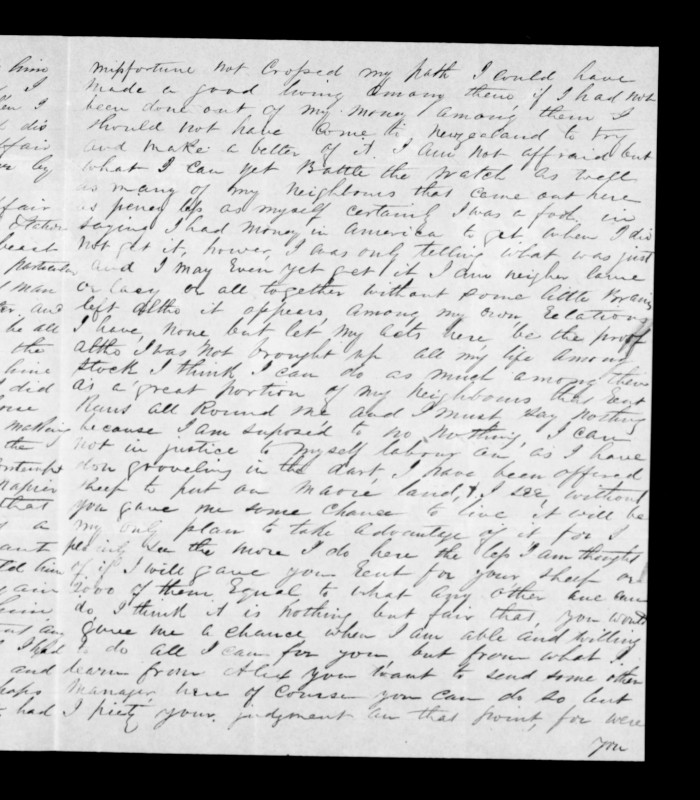 misfortune not Crossed my path I could have
made a good living among them if I had not
been done out of my money among them I
should not have Come to Newzeeland to try
and make a better of it. I am not affraid but
what I can yet Battle the watch as well
as many of my Neighbours that came out here
as penny less as myself certainly I was a fool in
saying I had money in America to get when I did
not get it, however, I was only telling what was just
and I may Even yet get it I am neigher lame
or lasy or all together without some little Brains
left altho it appears among my own Relations
I have none but let my acts here be the proof
altho I was not brought up all my life among
stock I think I can do as much among them
as a great portion of my Neighbours that rent
Runs all Round me and I must say nothing
because I am suposed to no nothing, I can
not in justice to myself labour on as I have
don groveling in the dart, I have been offered
sheep to put on Maorie land, & I see, without
you gave me some chance to live, it will be
my only plan to take advantage of it for I
plainly see the more I do here the less I am thought
of if I will gave you Rent for your sheep or
of them Equal to what any other one
do, I think it is nothing but fair that you would
gave me a chance when I am able and willing
to do all I can for you but from what I
learn from Alex you want to send some other
Manager here of Course you can do so but
I piety your judgment on that point, for were
you
him
I
dis
fair
by
fair
particular
man
and
be all
the
I did
the
contempt
Napier
that
a
told him
any
I had
and
had